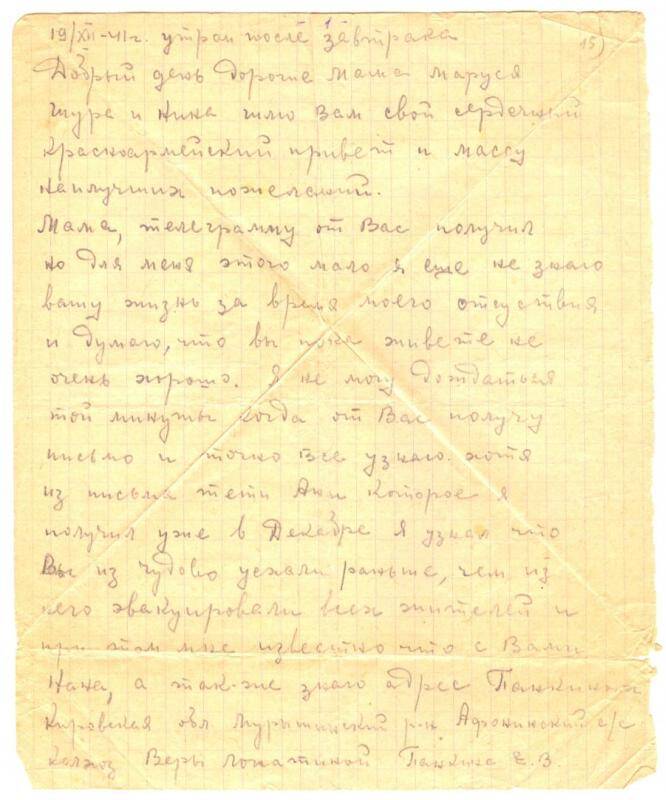 19/XII-41г. утром после завтрака
15)
Добрый день дорогие Мама Маруся
Шура и Нина шлю Вам свой сердечный
Красноармейский привет и массу
наилучших пожеланий.
Мама, телеграмму от Вас получил
но для меня этого мало я еще не знаю
вашу жизнь за время моего отсуствия
и думаю, что вы пока живете не
очень хорошо. Я не могу дождаться
той минуты когда от Вас получу
письмо и точно все узнаю. хотя
из письма тети Ани которое я
получил уже в Декабре я узнал что
Вы из Чудово уехали раньше, чем из
него эвакуировали всех жителей и
при этом мне известно что с Вами
Нана, а так-же знаю адрес
Кировская обл. Мурашинский р-н Афонинский с/с
колхоз Веры Лопатиной Е. В.